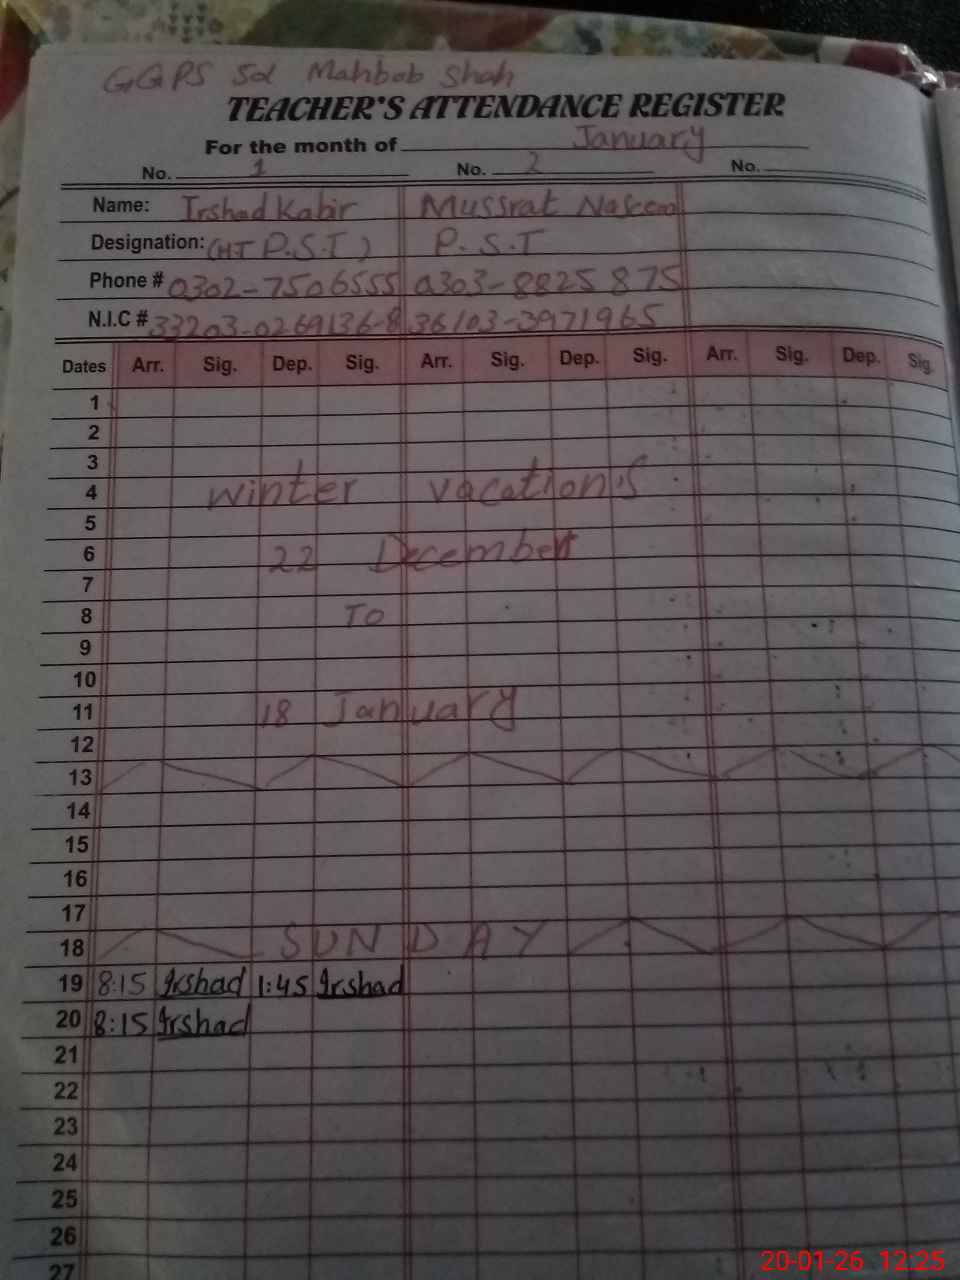 GGPS Sol Mahbob Shah
TEACHER'S ATTENDANCE REGISTER
For the month of January
No. 1 No. 2 No.
Name: Irshad Kabir Mussrat Naseem
Designation: (HT P.S.T) P.S.T
Phone # 0302-7506555 0303-8825875
N.I.C # 33203-0269136-8 36103-3971965
Dates Arr. Sig. Dep. Sig. Arr. Sig. Dep. Sig. Arr. Sig. Dep. Sig.
1
2
3
4 winter vacations
5
6 22 December
7
8 To
9
10
11 18 January
12
13
14
15
16
17
18 SUNDAY
19 8:15 Irshad 1:45 Irshad
20 8:15 Irshad
21
22
23
24
25
26
27
20-01-26 12:25